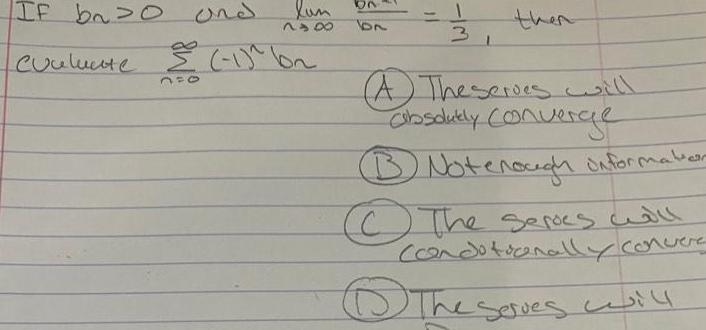 IF bn>0 and lim n→∞ bn+1/bn = 1/3, then
evaluate ∞ Σ n=0 (-1)^n bn
(A) The series will
absolutely converge
(B) Not enough information
(C) The series will
(conditionally converg
(D) The series will